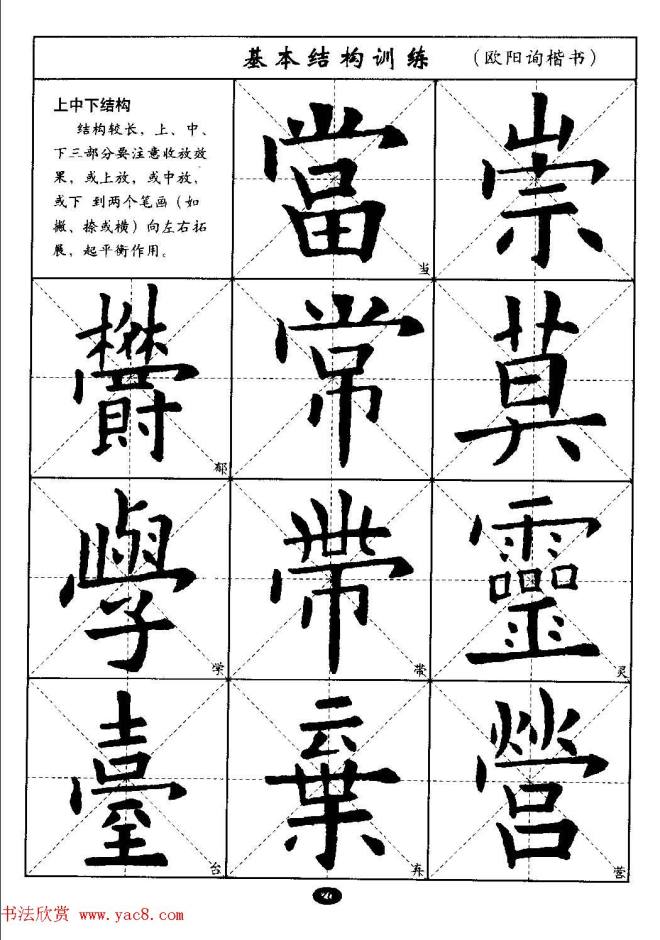 基本结构训练 (欧阳询楷书)
上中下结构
结构较长，上、中、
下三部分要注意收放效
果，或上放，或中放，
或下 到两个笔画（如
撇、捺或横）向左右拓
展，起平衡作用。
當 崇
当
欝 常 莫
郁
學 帶 靈
学 带 灵
臺 棄 營
台 弃 营
26
书法欣赏 www.yac8.com